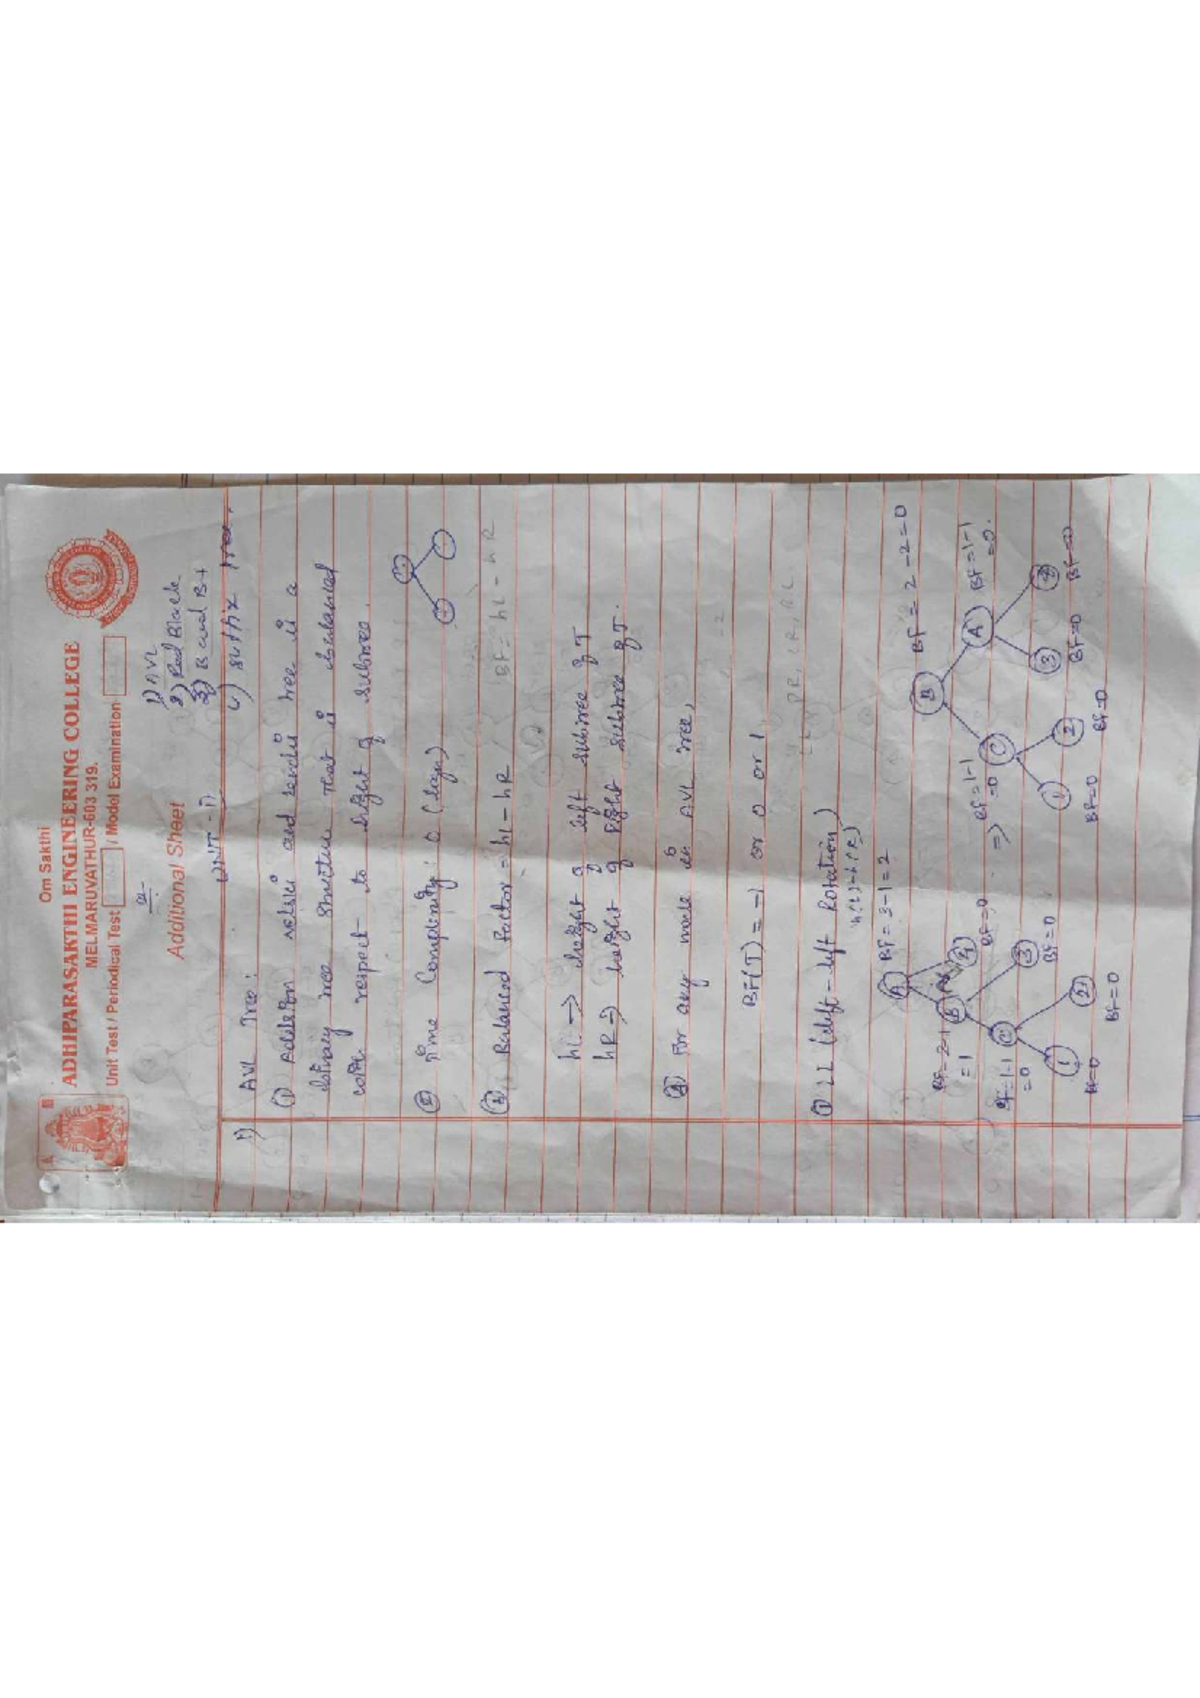 Om Sakthi
ADHIPARASAKTHI ENGINEERING COLLEGE
MELMARUVATHUR-603 319.
Unit Test / Periodical Test / Model Examination
Additional Sheet
1) AVL
2) Red Black
3) B and B+
4) Suffix tree.
UNIT - II
1) AVL Tree:
① Adelson velski and Landis tree is a
binary tree structure that is balanced
with respect to height of subtree.
② Time Complexity: O (logn)
③ Balanced factor = hL - hR
BF = hL - hR
hL → height of left subtree of T
hR → height of right subtree of T.
④ For any node in AVL tree,
BF(T) = -1 or 0 or 1
① LL (left-left Rotation)
h(L)-h(R)
BF = 3-1 = 2
A
BF = 2-1
= 1
B
4
BF=0
BF=1-1
=0
C
3
BF=0
1
BF=0
2
BF=0
⇒
BF = 2-2=0
B
BF=1-1
=0
C
A
BF=1-1
=0.
1
BF=0
2
BF=0
3
BF=0
4
BF=0